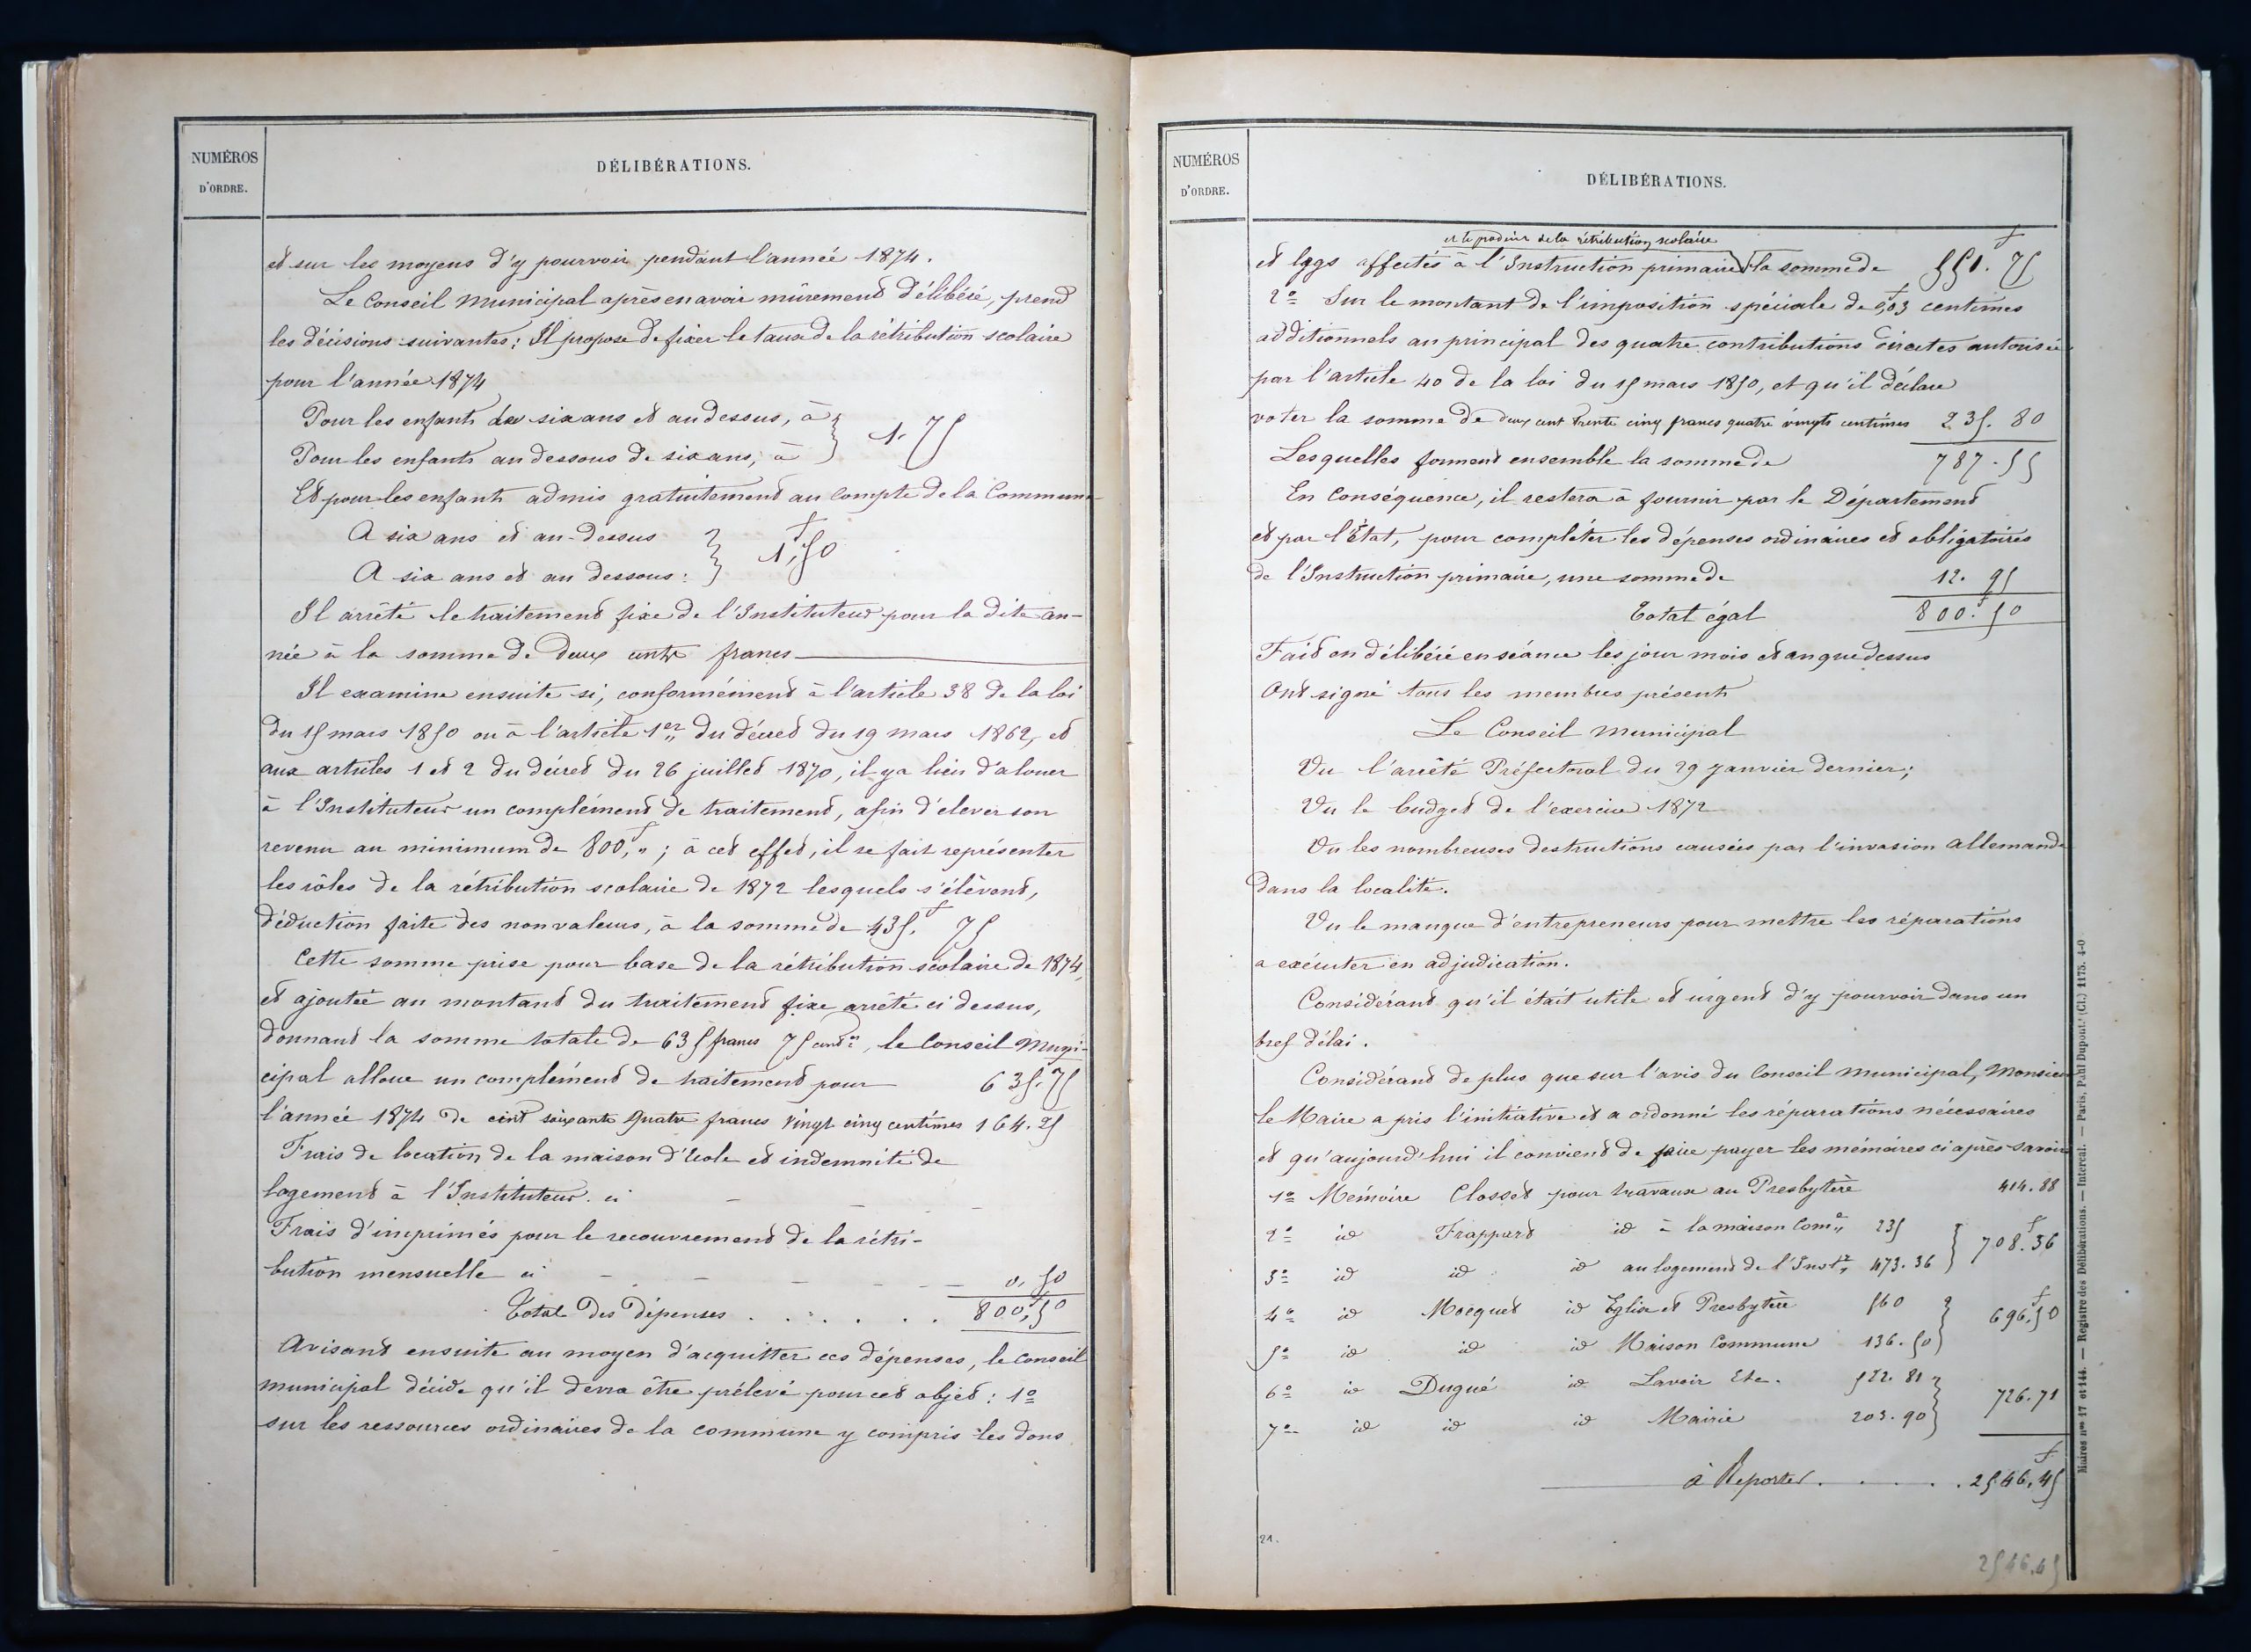 NUMÉROS
D'ORDRE.
DÉLIBÉRATIONS.
et sur les moyens d'y pourvoir pendant l'année 1874.
Le Conseil Municipal après en avoir mûrement délibéré, prend
les décisions suivantes : Il propose de fixer le taux de la rétribution scolaire
pour l'année 1874
Pour les enfants de six ans et au dessus, à
Pour les enfants au dessous de six ans, à } 1. 75
Et pour les enfants admis gratuitement au compte de la Commune
A six ans et au-dessus
A six ans et au dessous : } 1f,50
Il arrête le traitement fixe de l'Instituteur pour la dite an-
née à la somme de Deux cents francs
Il examine ensuite si, conformément à l'article 38 de la loi
du 15 mars 1850 ou à l'article 1er du décret du 19 mars 1862, et
aux articles 1 et 2 du décret du 26 juillet 1870, il y a lieu d'alouer
à l'Instituteur un complément de traitement, afin d'elever son
revenu au minimum de 800f, " ; à cet effet, il se fait représenter
les rôles de la rétribution scolaire de 1872 lesquels s'élèvent,
déduction faite des non valeurs, à la somme de 435f. 75
Cette somme prise pour base de la rétribution scolaire de 1874,
et ajoutée au montant du traitement fixe arrêté ci dessus,
donnant la somme totale de 635 francs 75 cent es, le Conseil Muni-
cipal alloue un complément de traitement pour 635.75
l'année 1874 de cent soixante quatre francs vingt cinq centimes 164.25
Frais de location de la maison d'école et indemnité de
logement à l'Instituteur. ci — — —
Frais d'imprimés pour le recouvrement de la rétri-
bution mensuelle ci — — — — 0,50
Total des dépenses . . . . . . 800f,50
Avisant ensuite au moyen d'acquitter ces dépenses, le Conseil
municipal décide qu'il devra être prélevé pour cet objet : 1o
sur les ressources ordinaires de la commune y compris les dons
NUMÉROS
D'ORDRE.
DÉLIBÉRATIONS.
et le produit de la rétribution scolaire
et legs affectés à l'Instruction primaire la somme de 551f. 75
2o Sur le montant de l'imposition spéciale de 0f,03 centimes
additionnels au principal des quatre contributions directes autorisée
par l'article 40 de la loi du 15 mars 1850, et qu'il déclare
voter la somme de deux cent trente cinq francs quatre vingts centimes 235. 80
Lesquelles forment ensemble la somme de 787.55
En Conséquence, il restera à fournir par le Département
et par l'État, pour compléter les dépenses ordinaires et obligatoires
de l'Instruction primaire, une somme de 12. 95
Total égal 800f.50
Fait en délibéré en séance les jour mois et an que dessus
Ont signé tous les membres présents
Le Conseil Municipal
Vu l'arrêté Préfectoral du 29 Janvier dernier;
Vu le budget de l'exercice 1872
Vu les nombreuses destructions causées par l'invasion Allemande
dans la localité.
Vu le manque d'entrepreneurs pour mettre les réparations
a exécuter en adjudication.
Considérant qu'il était utile et urgent d'y pourvoir dans un
bref délai.
Considérant de plus que sur l'avis du Conseil Municipal, Monsieur
le Maire a pris l'initiative et a ordonné les réparations nécessaires
et qu'aujourd'hui il convient de faire payer les mémoires ci après savoir
1o Mémoire Closset pour travaux au Presbytère 414.88
2o id Frappart id à la maison Com e 235
3o id id id au logement de l'Inst r 473.36 } 708f.36
4o id Mocquet id Eglise et Presbytère 560
5o id id id Maison Commune 136.50 } 696f.50
6o id Dugué id Lavoir Etc. 522.81
7o id id id Mairie 203.90 } 726.71
à Reporter . . . . . 2546f,45
21.
2546,45
Maires nos 17 et 144. — Registre des Délibérations. — Intercal. — Paris, Paul Dupont. (Cl.) 1175. 4-0